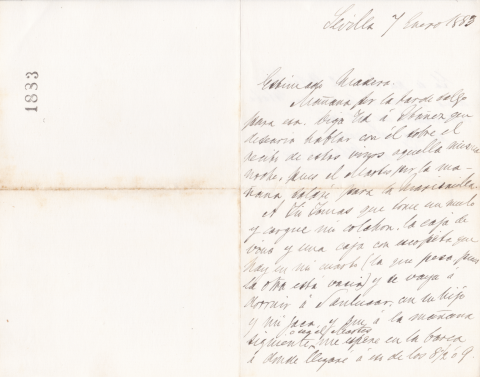 1883
Sevilla 7 Enero 1883
Estimado Madera.
Mañana por la tarde salgo
para esa. Diga Vd á Ibáñez que
desearia hablar con él sobre el
de estos vinos aquella misma
noche, pues el Martes por la ma-
ñana saldré para la
A Tio Tomas que tome un mulo
y cargue mi colchon, la caja de
vino y una caja con que
hay en mi cuarto (la que pesa, pues
la otra está vacia) y se vaya á
dormir á Sanlucar, con su hijo
y mi jaca, y que á la mañana
siguiente, ó sea el Martes me espere en la barca
á donde llegaré á eso de las 8½ ó 9.